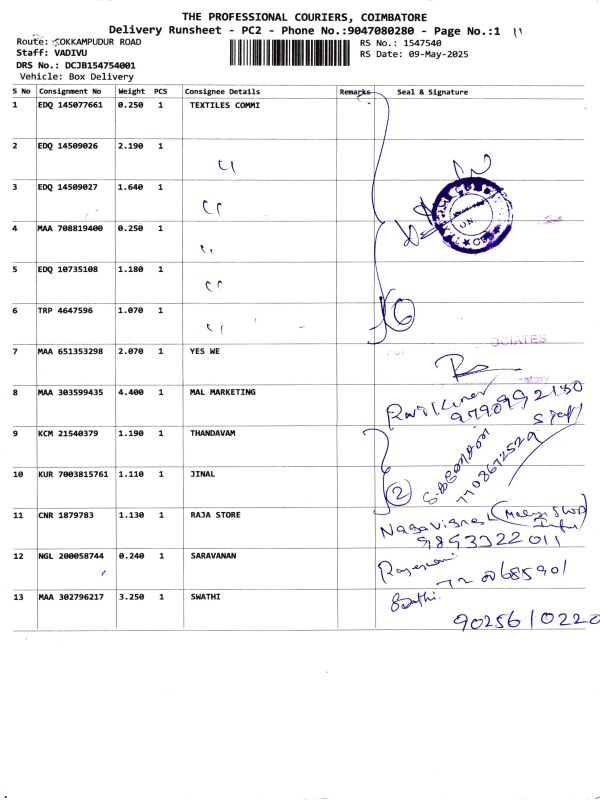 THE PROFESSIONAL COURIERS, COIMBATORE
Delivery Runsheet - PC2 - Phone No.:9047080280 - Page No.:1
Route: SOKKAMPUDUR ROAD
RS No.: 1547540
Staff: VADIVU
RS Date: 09-May-2025
DRS No.: DCJB154754001
Vehicle: Box Delivery
S No Consignment No Weight PCS Consignee Details Remarks Seal & Signature
1 EDQ 145077661 0.250 1 TEXTILES COMMI
2 EDQ 14509026 2.190 1 "
3 EDQ 14509027 1.640 1 "
4 MAA 708819400 0.250 1 "
5 EDQ 10735108 1.180 1 "
6 TRP 4647596 1.070 1 " 6
OCIATES
7 MAA 651353298 2.070 1 YES WE
atory
8 MAA 303599435 4.400 1 MAL MARKETING Ravi Kumar
9790992130
Staff
9 KCM 21540379 1.190 1 THANDAVAM
7708672529
10 KUR 7003815761 1.110 1 JINAL 2
11 CNR 1879783 1.130 1 RAJA STORE
9893322011
12 NGL 200058744 0.240 1 SARAVANAN
7200685901
13 MAA 302796217 3.250 1 SWATHI Swathi
9025610220